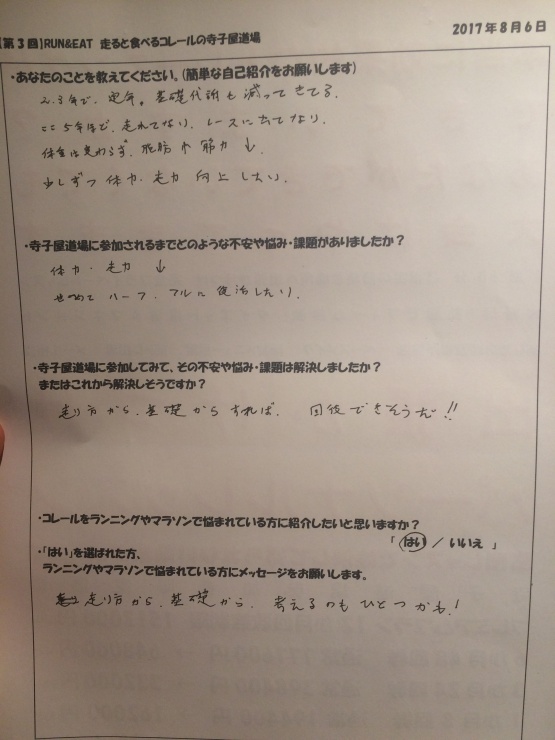 【第3回】RUN&EAT 走ると食べるコレールの寺子屋道場
2017年8月6日
・あなたのことを教えてください。(簡単な自己紹介をお願いします)
2.3年で、定年。基礎代謝も減ってきてる。
ここ5年ほど、走れてない、レースに出てない。
体重は変わらず、脂肪 筋力 ↓
少しずつ 体力・走力 向上したい。
・寺子屋道場に参加されるまでどのような不安や悩み・課題がありましたか?
体力・走力 ↓
せめて ハーフ、フルに復活したい。
・寺子屋道場に参加してみて、その不安や悩み・課題は解決しましたか?
またはこれから解決しそうですか?
走り方から、基礎からすれば、 回復できそうだ!!
・コレールをランニングやマラソンで悩まれている方に紹介したいと思いますか?
「 はい / いいえ 」
・「はい」を選ばれた方、
ランニングやマラソンで悩まれている方にメッセージをお願いします。
走り方から、基礎から、考えるのもひとつかも!